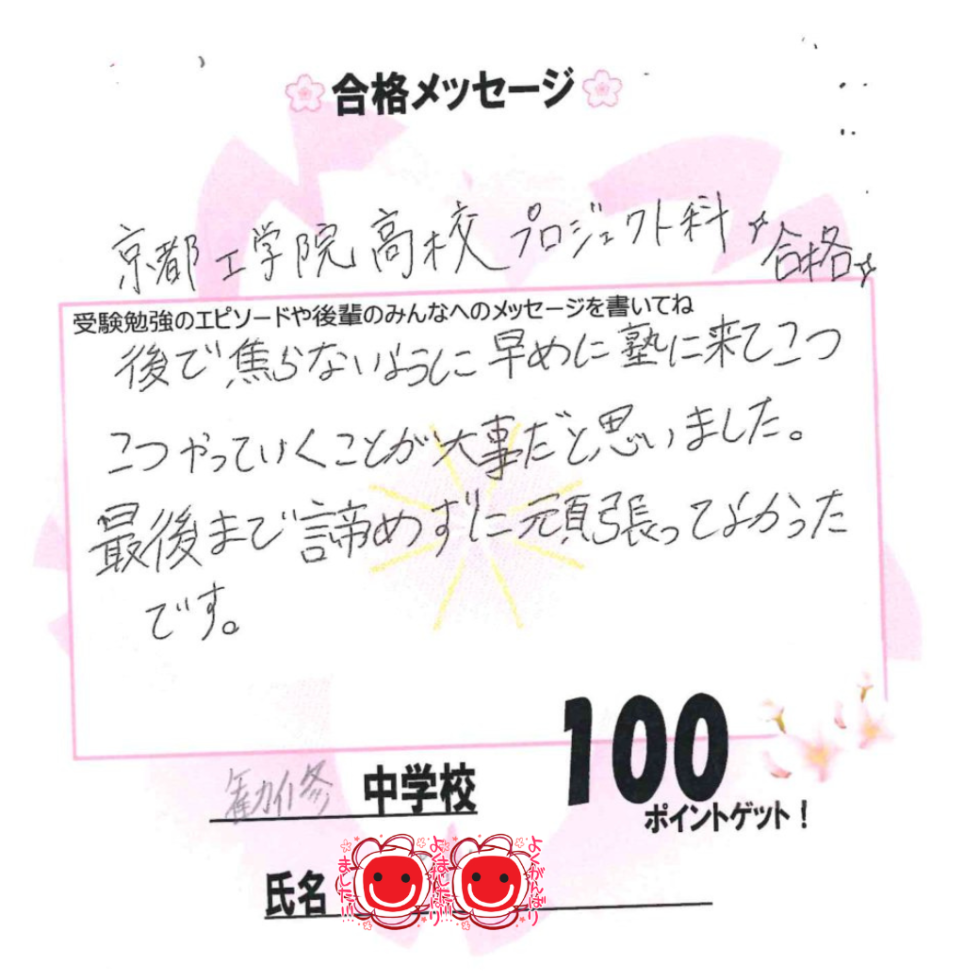 合格メッセージ
京都工学院高校 プロジェクト科 ☆合格☆
受験勉強のエピソードや後輩のみんなへのメッセージを書いてね
後で焦らないように早めに塾に来てコツ
コツやっていくことが大事だと思いました。
最後まで諦めずに頑張ってよかった
です。
100
ポイントゲット!
勧修 中学校
氏名
よくがんばり
ました!!!
よくがんばり